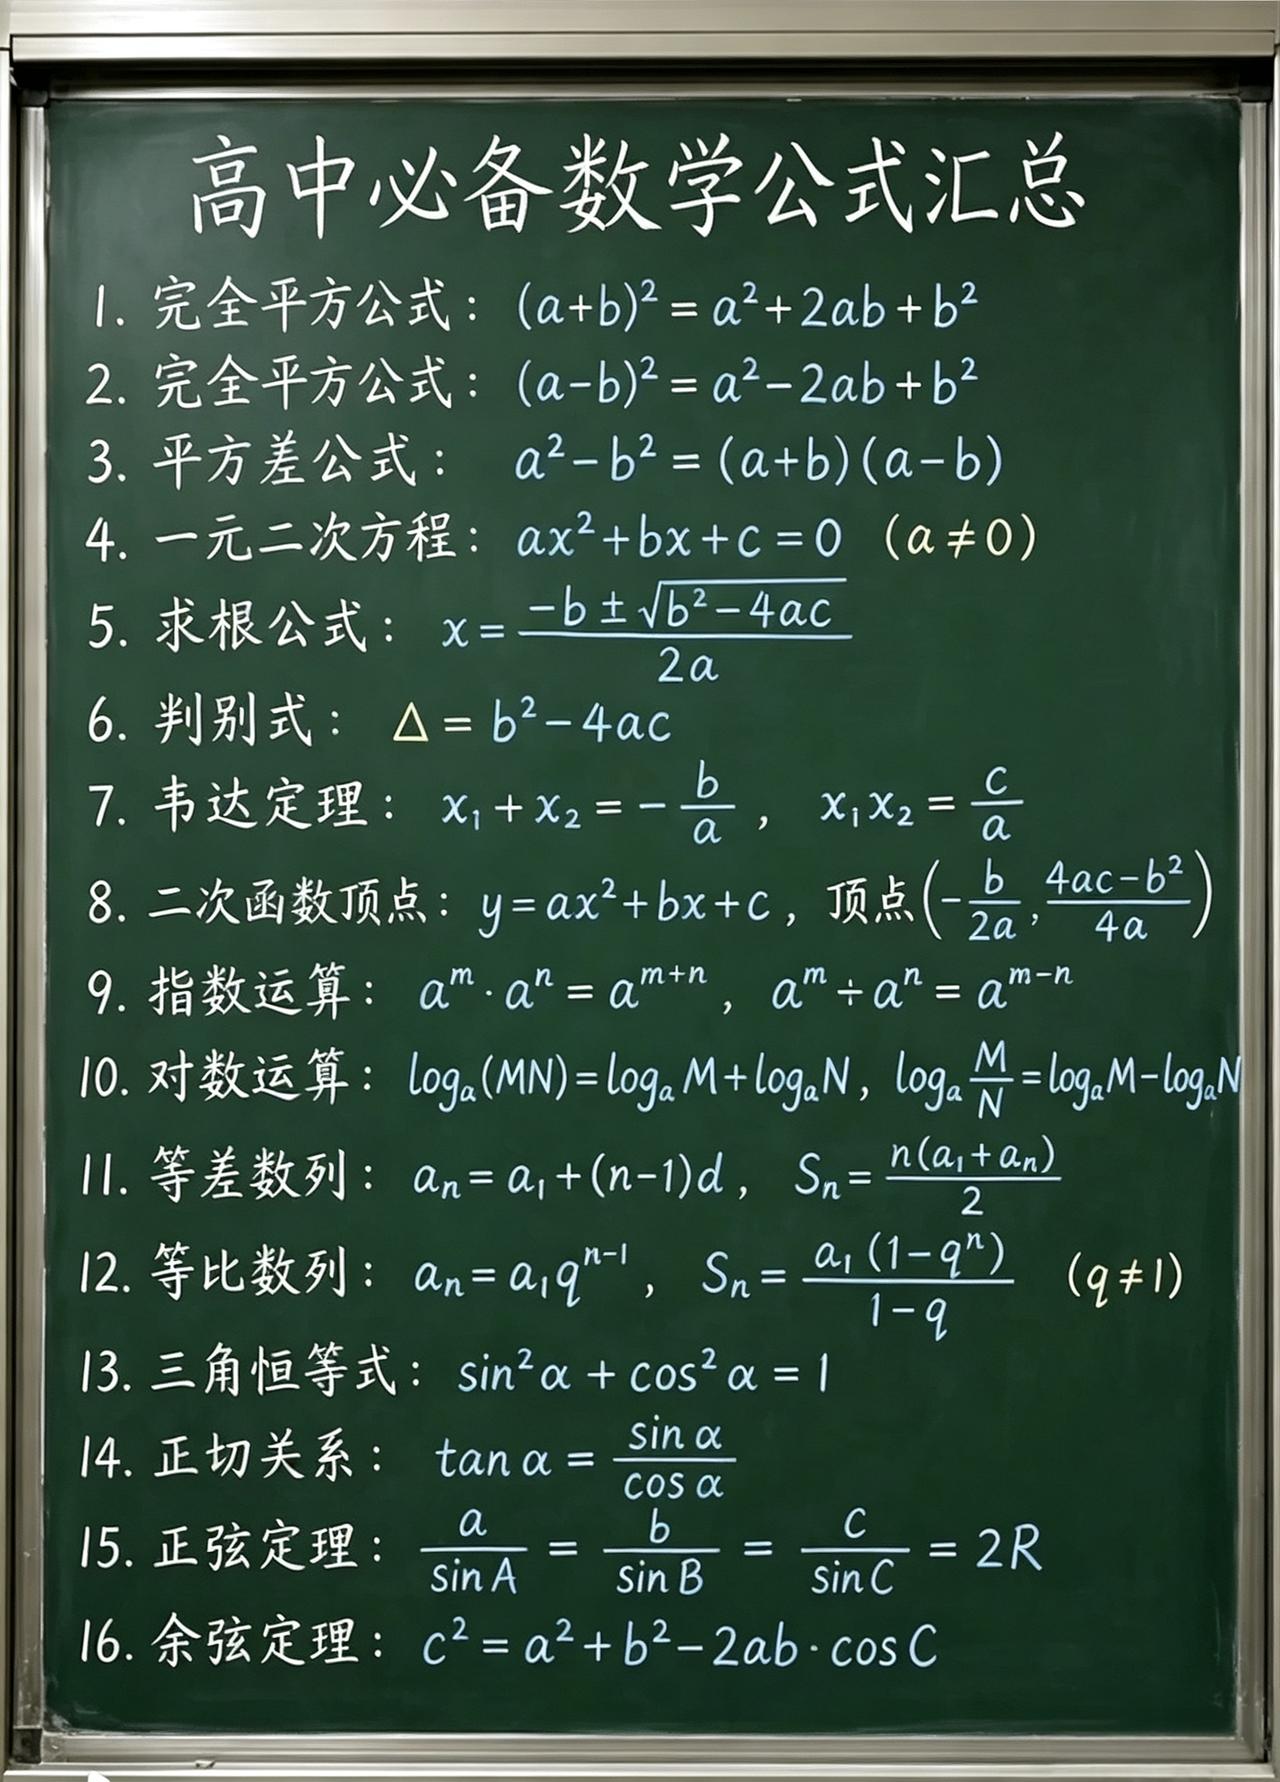 高中必备数学公式汇总
1. 完全平方公式: (a+b)² = a²+2ab+b²
2. 完全平方公式: (a-b)² = a²-2ab+b²
3. 平方差公式: a²-b² = (a+b)(a-b)
4. 一元二次方程: ax²+bx+c=0 (a≠0)
5. 求根公式: x = (-b±√(b²-4ac))/(2a)
6. 判别式: Δ = b²-4ac
7. 韦达定理: x₁+x₂ = -b/a, x₁x₂ = c/a
8. 二次函数顶点: y=ax²+bx+c, 顶点(-b/2a, (4ac-b²)/4a)
9. 指数运算: aᵐ·aⁿ = aᵐ⁺ⁿ, aᵐ÷aⁿ = aᵐ⁻ⁿ
10. 对数运算: logₐ(MN)=logₐM+logₐN, logₐ(M/N)=logₐM-logₐN
11. 等差数列: aₙ=a₁+(n-1)d, Sₙ=n(a₁+aₙ)/2
12. 等比数列: aₙ=a₁qⁿ⁻¹, Sₙ=a₁(1-qⁿ)/(1-q) (q≠1)
13. 三角恒等式: sin²α + cos²α = 1
14. 正切关系: tan α = sin α/cos α
15. 正弦定理: a/sin A = b/sin B = c/sin C = 2R
16. 余弦定理: c² = a²+b²-2ab·cos C